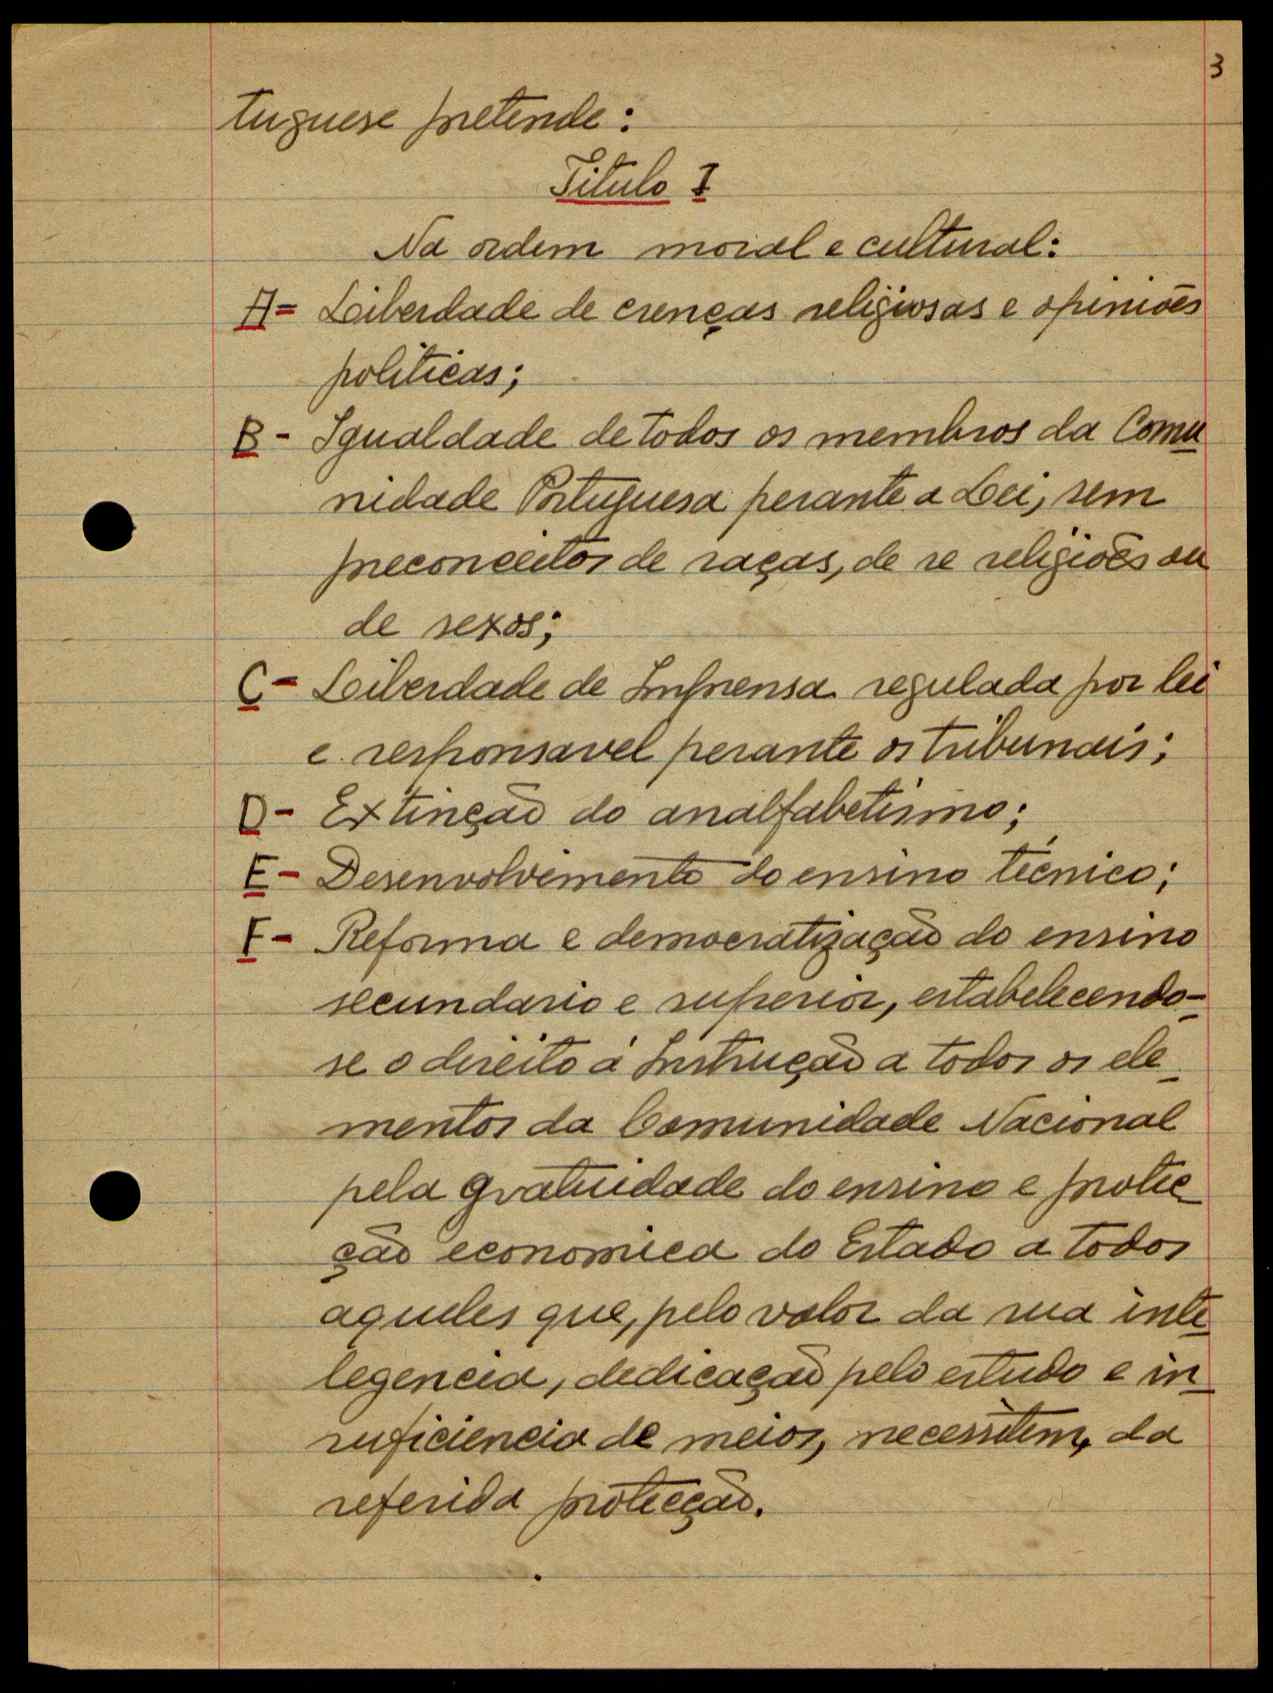 3
tuguese pretende:
Titulo I
Na ordem moral e cultural:
A= Liberdade de crenças religiosas e opiniões
politicas;
B- Igualdade de todos os membros da Comu
nidade Portuguesa perante a Lei, sem
preconceitos de raças, de re religiões ou
de sexos;
C- Liberdade de Imprensa regulada por lei
e responsavel perante os tribunais;
D- Extinção do analfabetismo;
E- Desenvolvimento do ensino técnico;
F- Reforma e democratização do ensino
secundario e superior, estabelecendo-
se o direito á Instrução a todos os ele-
mentos da Comunidade Nacional
pela gratuidade do ensino e protec
ção economica do Estado a todos
aqueles que, pelo valor da sua inte
legencia, dedicação pelo estudo e in
suficiencia de meios, necessitem, da
referida protecção.